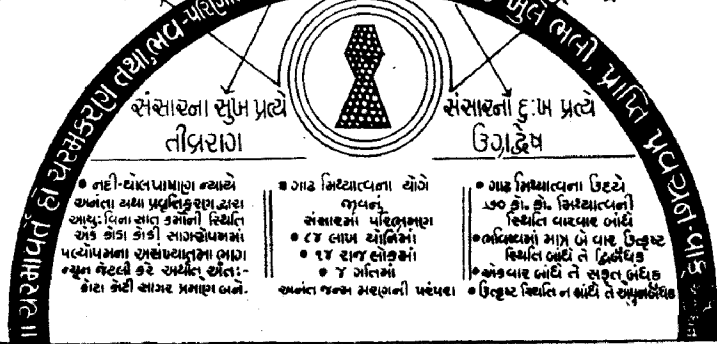 ॥ ચરમાવર્તે હો ચરમકરણ તથા, ભવ-પરિણ
ખુલે ભલી, પ્રાપ્તિ પ્રવચન-વાક
સંસારના સુખ પ્રત્યે
તીવ્રરાગ
સંસારના દુઃખ પ્રત્યે
ઉગ્રદ્વેષ
• નદી-ઘોલપાષાણ ન્યાયે
અનંતા યથા પ્રવૃત્તિકરણ દ્વારા
આયુઃ વિના સાત કર્મોની સ્થિતિ
એક કોડા કોડી સાગરોપમમાં
પલ્યોપમના અસંખ્યાતમા ભાગ
ન્યૂન જેટલી કરે અર્થાત્ અંતઃ-
કોટા કોટી સાગર પ્રમાણ બને.
• ગાઢ મિથ્યાત્વના યોગે
જીવનું
સંસારમાં પરિભ્રમણ
• ૮૪ લાખ યોનિમાં
• ૧૪ રાજલોકમાં
• ૪ ગતિમાં
અનંત જન્મ મરણની પરંપરા
• ગાઢ મિથ્યાત્વના ઉદયે
૭૦ કો. કો. મિથ્યાત્વની
સ્થિતિ વારંવાર બાંધે
• ભવિષ્યમાં માત્ર બે વાર ઉત્કૃષ્ટ
સ્થિતિ બાંધે તે દ્વિર્બંધક
• એકવાર બાંધે તે સકૃત્ બંધક
• ઉત્કૃષ્ટ સ્થિતિ ન બાંધે તે અપુનર્બંધક